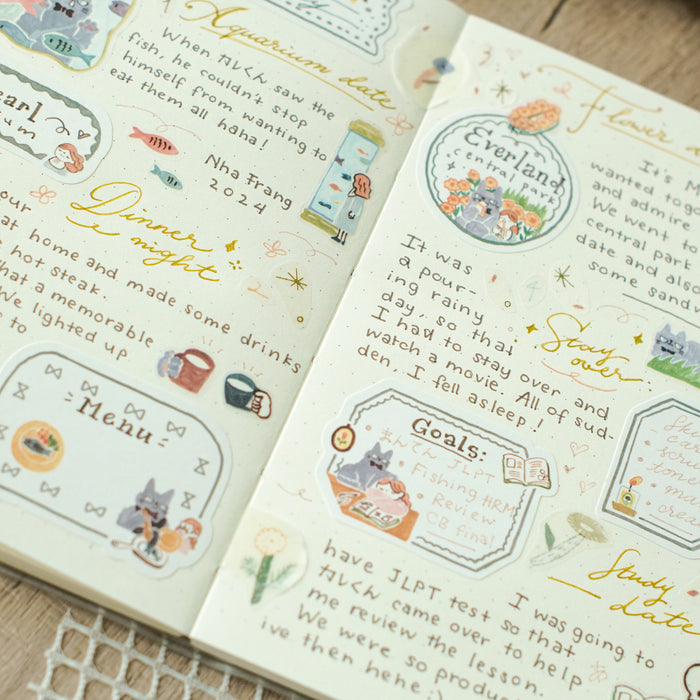 Aquarium date
When カレくん saw the
fish, he couldn't stop
himself from wanting to
eat them all haha!
Nha Trang
2024
Dinner
night
at home and made some drinks
hot steak.
that a memorable
We lighted up
to
Menu
Everland
central park
Flower
It's
wanted to
and admire
We went t
central park
date and also
some sand
It was
a pour-
ing rainy
day, so that
I had to stay over and
watch a movie. All of sud-
den, I fell asleep!
Stay
over
Goals:
• まんてん JLPT
• Fishing HRM
• Review
CB final
Study
date
I was going to
have JLPT test so that
カレくん came over to help
me review the lesson.
We were so produc
ive then hehe :)